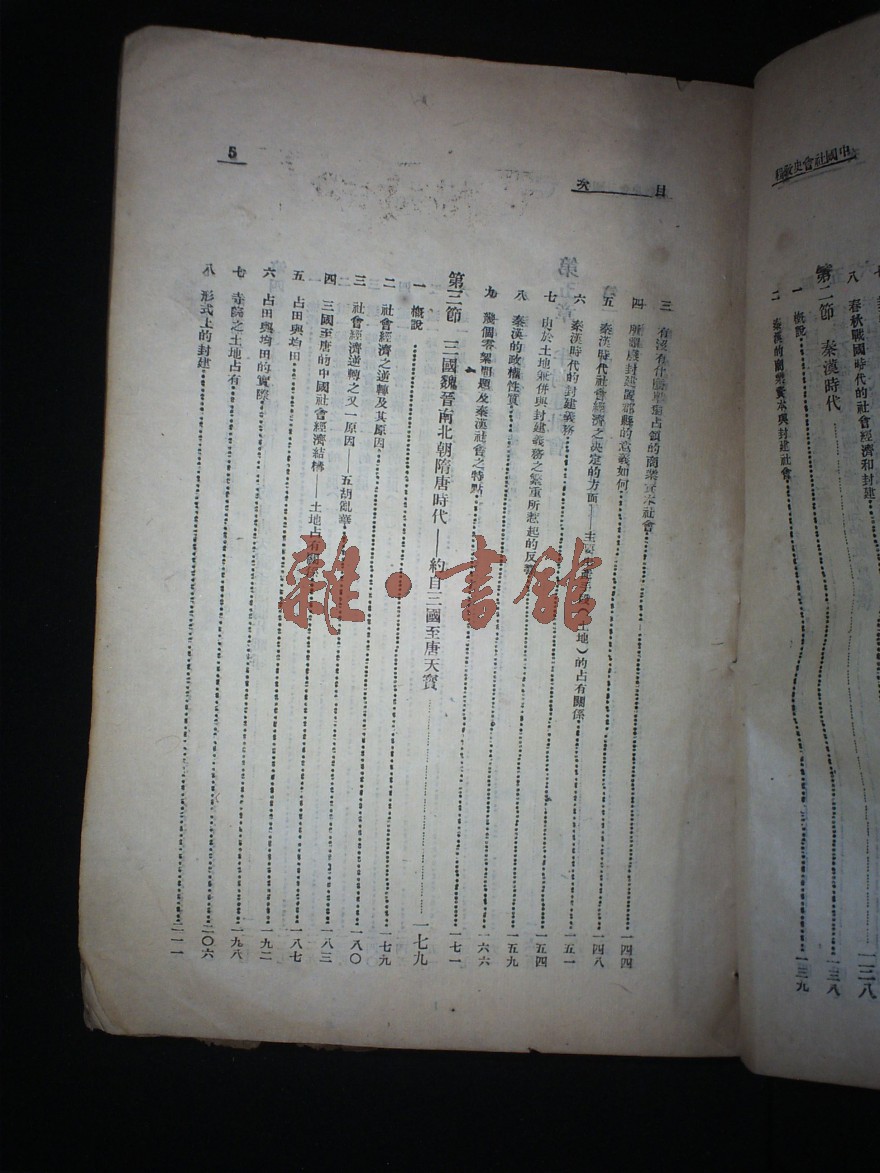 中國社會史
八 春秋戰國時代的社會經濟和封建
第二節 秦漢時代 一三八
一 概說 一三八
二 秦漢的商業資本與封建社會 一三九
目次
三 有沒有代 占領的商業資本社會 一四四
四 所謂廢封建置郡縣的意義如何 一四八
五 秦漢時代社會經濟之決定的方面——主要 (土地)的占有關係 一五一
六 秦漢時代的封建義務 一五四
七 由於土地兼併與封建義務之繁重所惹起的反 一五九
八 秦漢的政權性質 一六六
九 幾個零碎問題及秦漢社會之特點 一七一
第三節 三國魏晉南北朝隋唐時代——約自三國至唐天寶 一七九
一 概說 一七九
二 社會經濟之逆轉及其原因 一八〇
三 社會經濟逆轉之又一原因——五胡亂華 一八三
四 三國至唐的中國社會經濟結構——土地占有關係 一八七
五 占田與均田 一九二
六 占田與均田的實際 一九八
七 寺院之土地占有 二〇六
八 形式上的封建 二一一
5
雜·書館